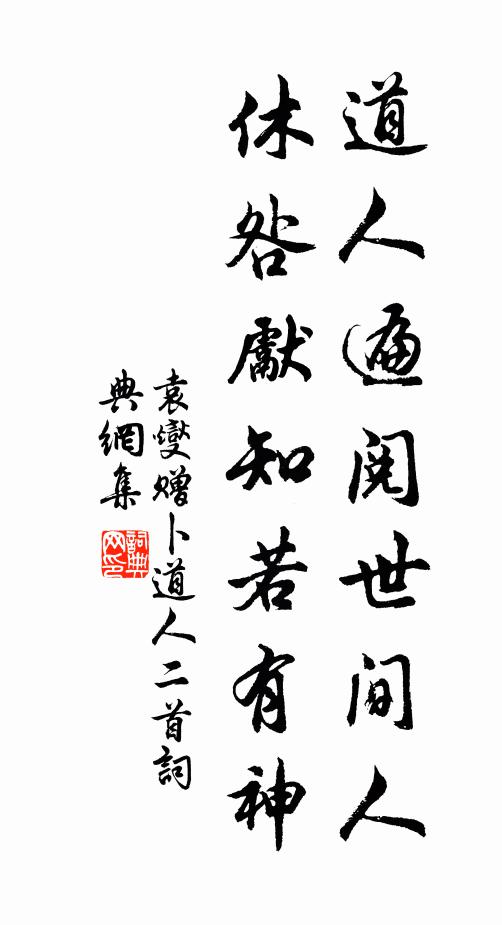 道人遍阅世间人
休咎獻知若有神
袁燮赠卜道人二首詞
典網集
詞典网印